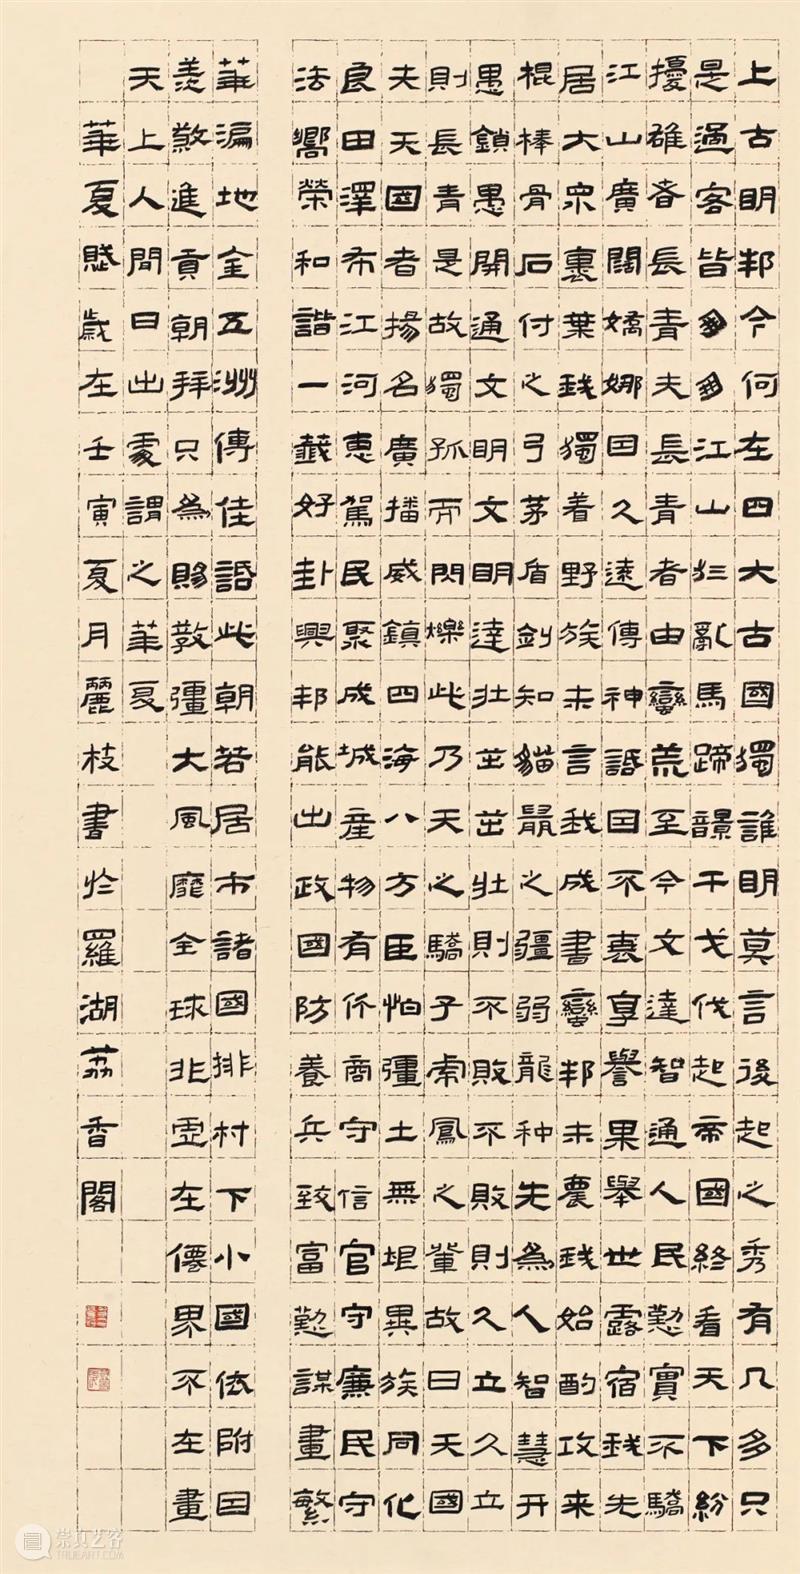 上古明邦今何在四大古國獨誰明莫言後起之秀有几多只
是過客皆匆匆江山亂馬蹄韻干戈伐起帝國終看天下紛
擾雄者長青夫長青者由蠻荒至今文達智通人民勤實不驕
江山廣闊嬌娜曰久遠傳神話曰不衰享譽果舉世露宿我先
居大眾裏葉我獨着野族未言我成書蠻邦未農我始酌攻来
棍棒骨石付之弓茅盾劍知貓鼠之疆弱龍种先為人智慧开
愚鎖愚開通文明文明達壯茁茁壯則不敗不敗則久立久立
則長青是故獨孤而閃爍此乃天之驕子鳳之輩故曰天國
夫天國者揚名廣播威鎮四海八方臣怕疆土無垠異族同化
良田澤布江河惠駕民聚成城産物有价商守信官守廉民守
法嚮榮和諧一籤好卦興邦能出政國防養兵致富勤謀畫繁
華遍地金五洲傳佳話此朝若居市諸國排村下小國依附曰
羨敬進貢朝拜只為賜教疆大風靡全球非虛在僊界不在畫
天上人間日出處謂之華夏
華夏賦歲在壬寅夏月麗枝書於羅湖荔香閣
崇真艺客
TRUEART.COM